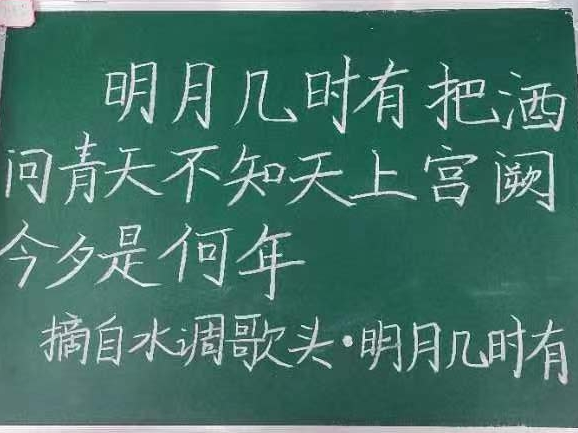 明月几时有把酒
问青天不知天上宫阙
今夕是何年
摘自水调歌头·明月几时有